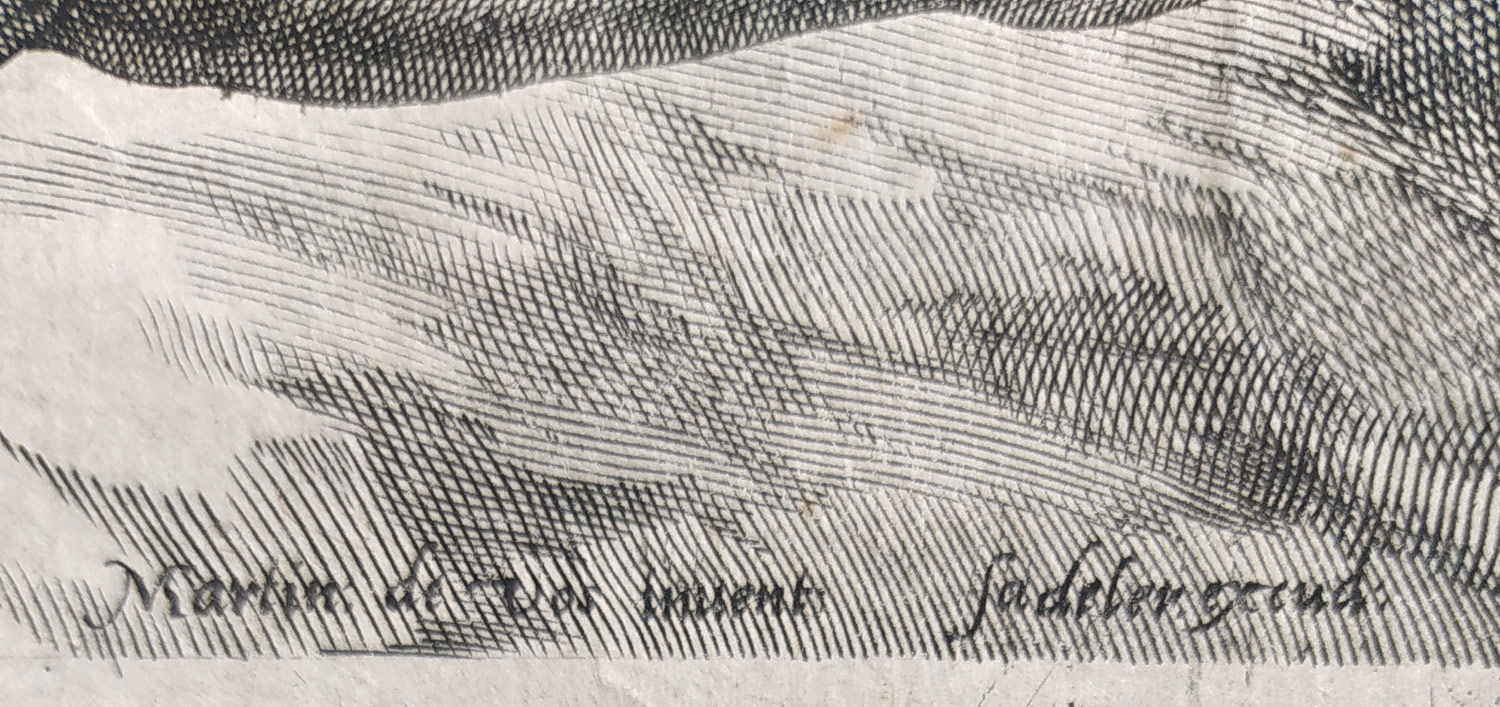 Martin. de Vos inuent. sadeler excud.